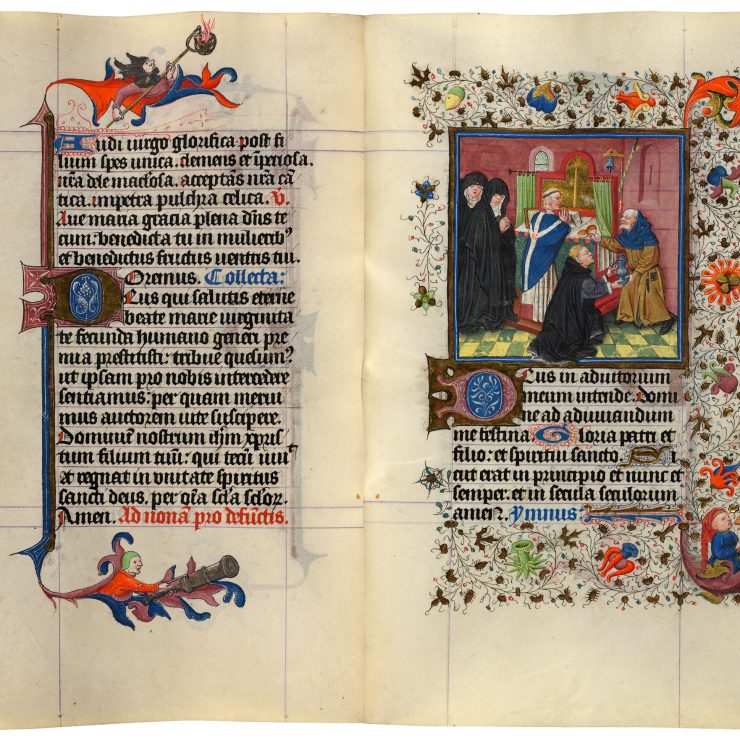 Audi virgo glorifica post fi
lium spes unica. clemens et īperiosa.
nr̄a dele maclosa. acceptās nr̄a cā
tica. impetra pulchra celica. V.
Aue maria gracia plena dn̄s te
cum: benedicta tu in mulierib₉
et benedictus fructus uentris tui.
Oremus. Collecta:
Deus qui salutis eterne
beate marie uirginita
te fecunda humano generi pre
mia prestitisti: tribue quesum₉
ut ipsam pro nobis intercedere
sentiamus: per quam merui
mus auctorem uite suscipere.
Dominum nostrum ih̄m xpris
tum filium tuū: qui tecū uiuit
et regnat in unitate spiritus
sancti deus. per oīa scl̄a sclōr.
Amen. Ad nonam pro defūctis.
Deus in adiutorium
meum intende. Domi
ne ad adiuuandum
me festina. Gloria patri et
filio: et spiritui sancto. Si
cut erat in principio et nunc et
semper. et in secula seculorum
amen. Ymnus: